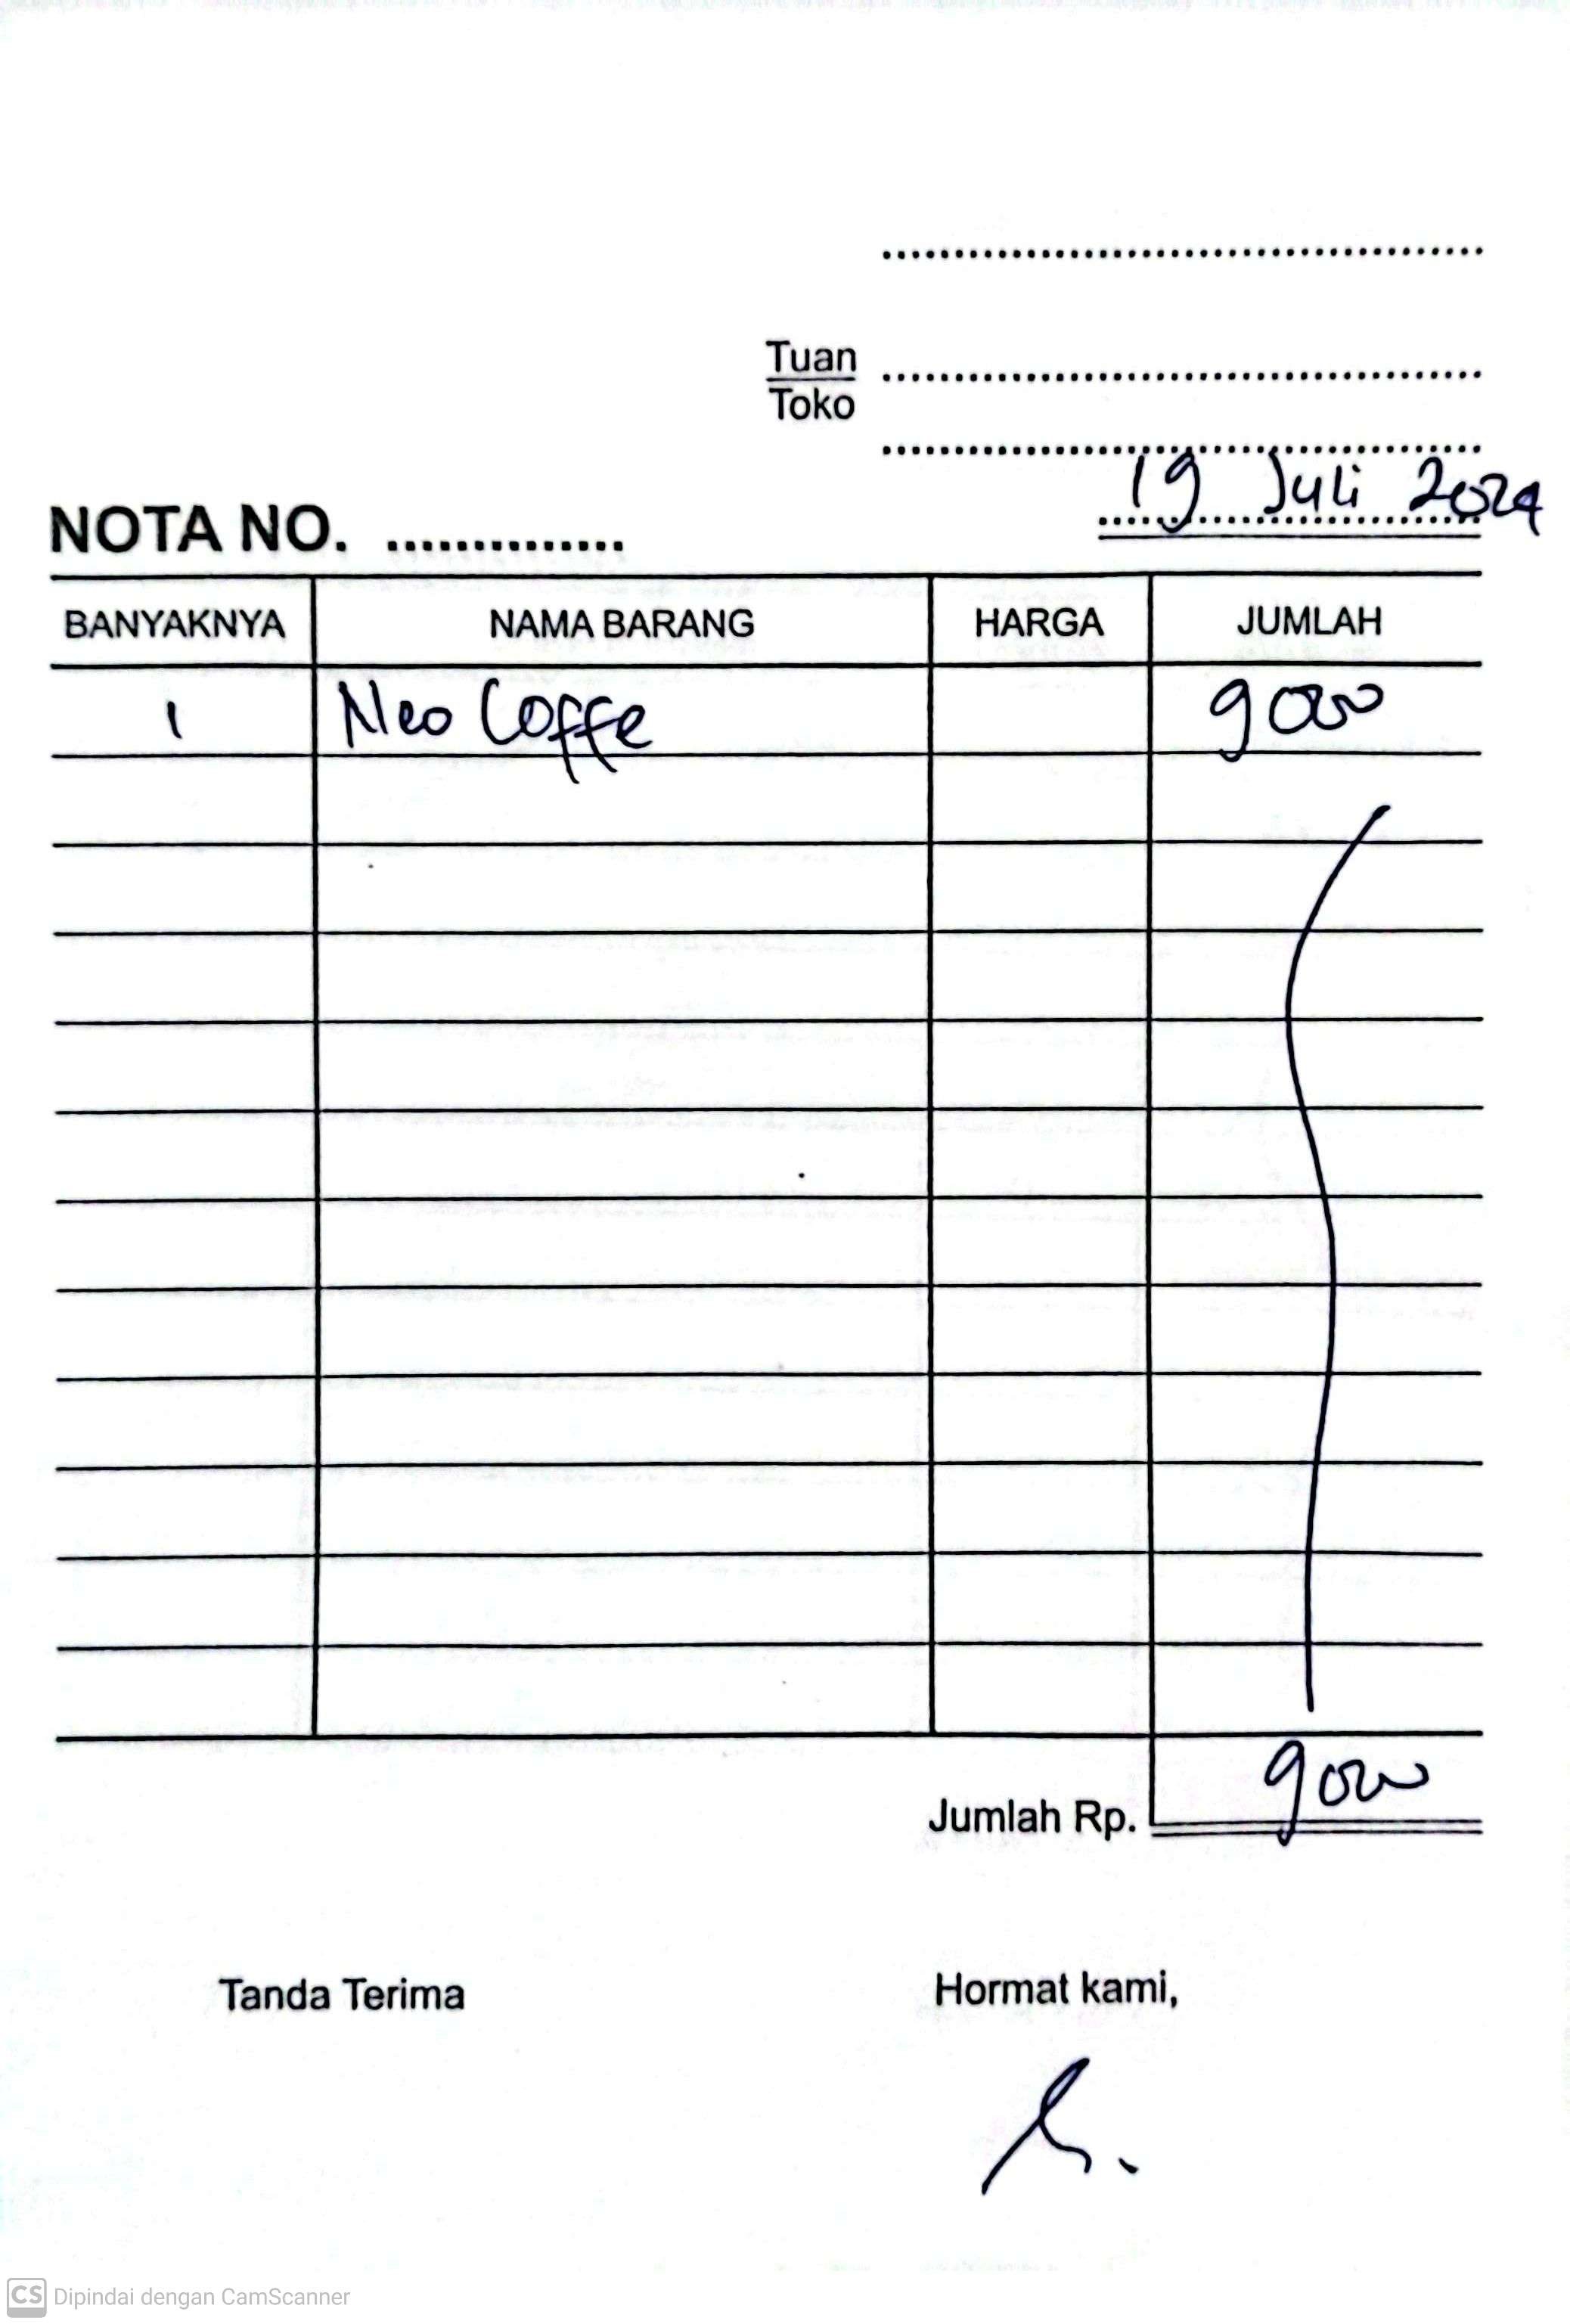 Tuan
Toko
19 Juli 2024
NOTA NO. ..............
BANYAKNYA NAMA BARANG HARGA JUMLAH
1 Neo Coffe 9000
Jumlah Rp. 9000
Tanda Terima Hormat kami,
CS Dipindai dengan CamScanner